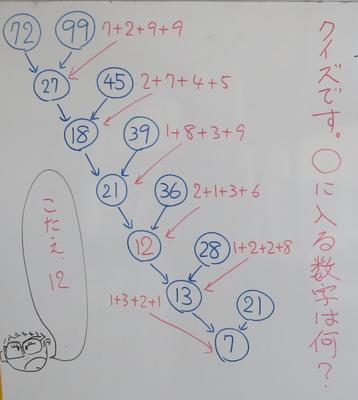 クイズです。○に入る数字は何？
72 99 7+2+9+9
27 45 2+7+4+5
18 39 1+8+3+9
21 36 2+1+3+6
12 28 1+2+2+8
13 21
1+3+2+1 7
こたえ.12